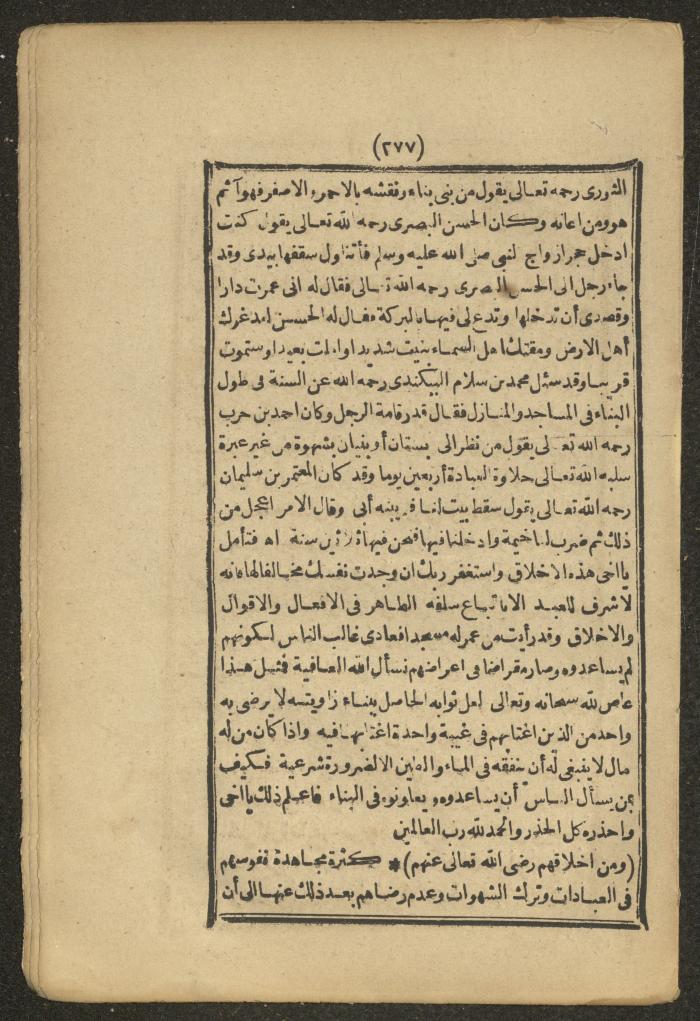 (٢٧٧)
الثورى رحمه تعالى يقول من بنى بناء ونقشه بالاحمر والاصفر فهو آثم
هو ومن اعانه وكان الحسن البصرى رحمه الله تعالى يقول كنت
ادخل حجر ازواج النبى صلى الله عليه وسلم فأتناول سقفها بيدى وقد
جاء رجل الى الحسن البصرى رحمه الله تعالى فقال له انى عمرت دارا
وقصدى أن تدخلها وتدعو لى فيها بالبركة فقال له الحسن لقد غرك
أهل الارض ومقتك اهل السماء بنيت شديدا واملت بعيدا وستموت
قريبا وقد سئل محمد بن سلام البيكندى رحمه الله عن السنة فى طول
البناء فى المساجد والمنازل فقال قدر قامة الرجل وكان احمد بن حرب
رحمه الله تعالى يقول من نظر الى بستان أو بنيان بشهوة من غير عبرة
سلبه الله تعالى حلاوة العبادة أربعين يوما وقد كان المعتمر بن سليمان
رحمه الله تعالى يقول سقط بيت لنا فلم يبنه أبى وقال الامر اعجل من
ذلك ثم ضرب لنا خيمة وادخلنا فيها فنحن فيها ثلاثين سنة اه فتأمل
يا اخى هذه الاخلاق واستغفر ربك ان وجدت نفسك مخالفا لها فانه
لا شرف للعبد الا باتباع سلفه الطاهر فى الافعال والاقوال
والاخلاق وقد رأيت من عمر له مسجدا فعادى غالب الناس لكونهم
لم يساعدوه وصار مقراضا فى اعراضهم نسأل الله العافية فمثل هذا
عاص لله سبحانه وتعالى لعل ثوابه الحاصل ببناء زاويته لا يرضى به
واحد من الذين اغتابهم فى غيبة واحدة اغتابها فيه واذا كان من له
مال لا ينبغى له أن ينفقه فى الماء والطين الا لضرورة شرعية فكيف
بمن يسأل الناس أن يساعدوه ويعاونوه فى البناء فاعلم ذلك يا اخى
واحذره كل الحذر والحمد لله رب العالمين
(ومن اخلاقهم رضى الله تعالى عنهم)* كثرة مجاهدة نفوسهم
فى العبادات وترك الشهوات وعدم رضاهم بعد ذلك عنها الى أن